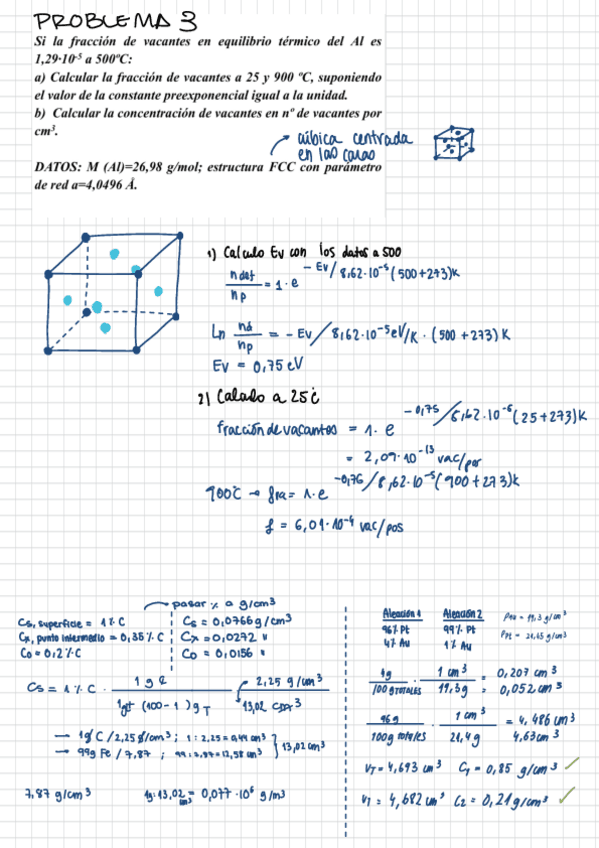 PROBLEMA 3
Si la fracción de vacantes en equilibrio térmico del Al es
1,29·10⁻⁵ a 500ºC:
a) Calcular la fracción de vacantes a 25 y 900 ºC, suponiendo
el valor de la constante preexponencial igual a la unidad.
b) Calcular la concentración de vacantes en nº de vacantes por
cm³.
cúbica centrada
en las caras
DATOS: M (Al)=26,98 g/mol; estructura FCC con parámetro
de red a=4,0496 Å.
1) Calculo Ev con los datos a 500
n det / np = 1 · e^(-Ev/8,62·10⁻⁵(500+273)K)
Ln nd/np = - Ev/8,62·10⁻⁵eV/K · (500+273)K
Ev = 0,75 eV
2) Calculo a 25ºC
fracción de vacantes = 1 · e^(-0,75/8,62·10⁻⁵(25+273)K)
= 2,09·10⁻¹³ vac/pos
900ºC → fra = 1·e^(-0,75/8,62·10⁻⁵(900+273)K)
f = 6,01·10⁻⁴ vac/pos
pasar % a g/cm³
Cs, superficie = 1% C
Cx, punto intermedio = 0,35% C
Co = 0,2% C
Cs = 0,0766 g/cm³
Cx = 0,0272 "
Co = 0,0156 "
Cs = 1% C · 1 g C / 1gt (100-1) gT
2,25 g/cm³
13,02 cm³
→ 1g C/2,25 g/cm³; 1:2,25=0,44 cm³
→ 99g Fe/7,87; 99:7,87=12,58 cm³
13,02 cm³
7,87 g/cm³
1g:13,02 cm³ = 0,077·10⁶ g/m³
Aleación 1 Aleación 2
96% Pt 99% Pt
4% Au 1% Au
ρAu = 19,3 g/cm³
ρPt = 21,45 g/cm³
4g / 100 g totales · 1 cm³ / 19,3g = 0,207 cm³
= 0,052 cm³
96g / 100g totales · 1 cm³ / 21,4 g = 4,486 cm³
4,63 cm³
VT = 4,693 cm³ C1 = 0,85 g/cm³ ✓
VT = 4,682 cm³ C2 = 0,21 g/cm³ ✓